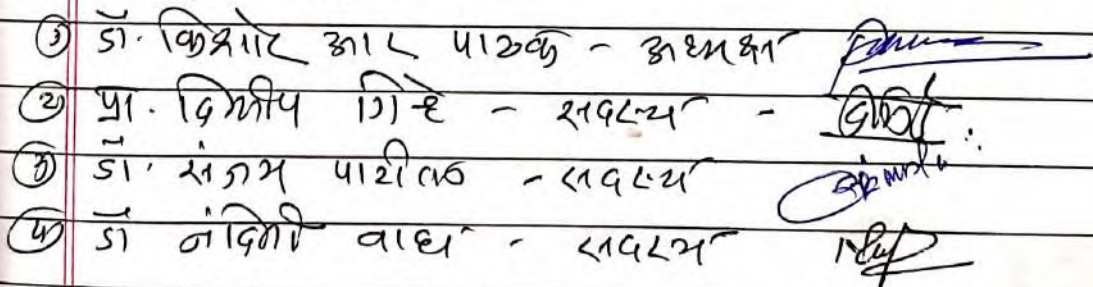 ① डॉ. किशोर आर पाठक - अध्यक्ष
② प्रा. दिलीप गिऱ्हे - सदस्य -
③ डॉ. संजय पाटील - सदस्य
④ डॉ नंदिनी वाघ - सदस्य